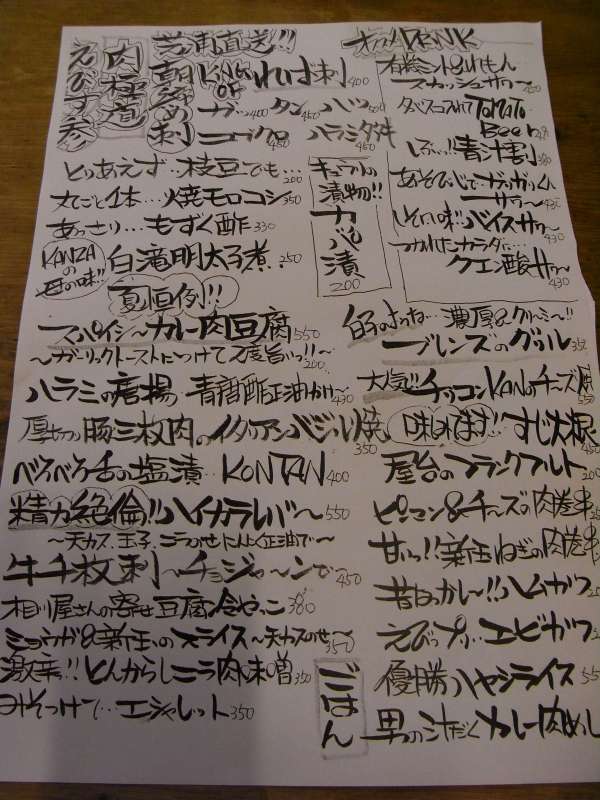 えびす参
肉極道
芝浦直送!!
朝〆め刺
KING OF れば刺 400
ガツ 400 タン 450 ハツ 450
コブクロ 450 ハラミタタキ
とりあえず…枝豆でも… 200
丸ごと1本…焼モロコシ 350
あっさり…もずく酢 330
KANZAの母の味!! 白滝明太子煮 250
キュウリの漬物!! カッパ漬 200
夏恒例!!
スパイシーカレー肉豆腐 550
〜ガーリックトーストにつけて2度旨いっ!!〜 200
ハラミの唐揚 青唐酢正油かけ〜 430
厚切り豚三枚肉のイタリアンバジル焼 350
べろべろ舌の塩漬…KONTAN 400
精力絶倫!! ハイカラレバ〜 550
〜天カス、玉子、ニラのせにんにく正油で〜
牛千枚刺〜チョジャ〜ンで 450
相川屋さんの寄せ豆腐冷やっこ 380
ミョウガ&新玉のスライス〜天カスのせ〜 350
激辛!! とんからしニラ肉味噌 350
みそつけて…エシャレット 350
DRINK
スカッシュサワ〜
タバスコ入れて TOMATO
Beer
しぶいっ!! 青汁割
サワ〜 430
しその味!! バイスサワ〜 430
つかれたカラダに…
クエン酸サワ〜 430
濃厚&クリーミー!!
ブレンズのグリル 350
大人気!! チャッコンKANのチーズ焼 550
味しみてます!! すじ大根 450
屋台のフランクフルト 200
ピーマン&チーズの肉巻串
甘いっ!! 新玉ねぎの肉巻串
昔なつかし〜!! ハムカツ
えびっプリ…エビカツ
ごはん
優勝ハヤシライス 550
男の汁だくカレー肉めし